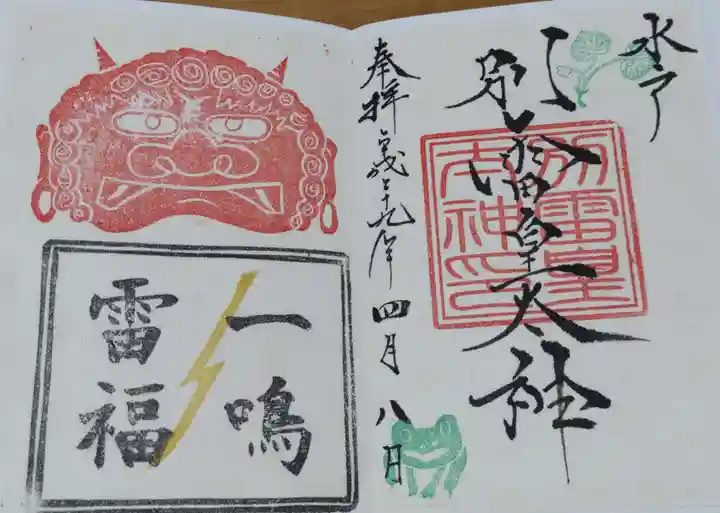 水戸
別雷皇太神
別雷皇
太神印
奉拝 平成二十九年四月八日
一鳴
雷福